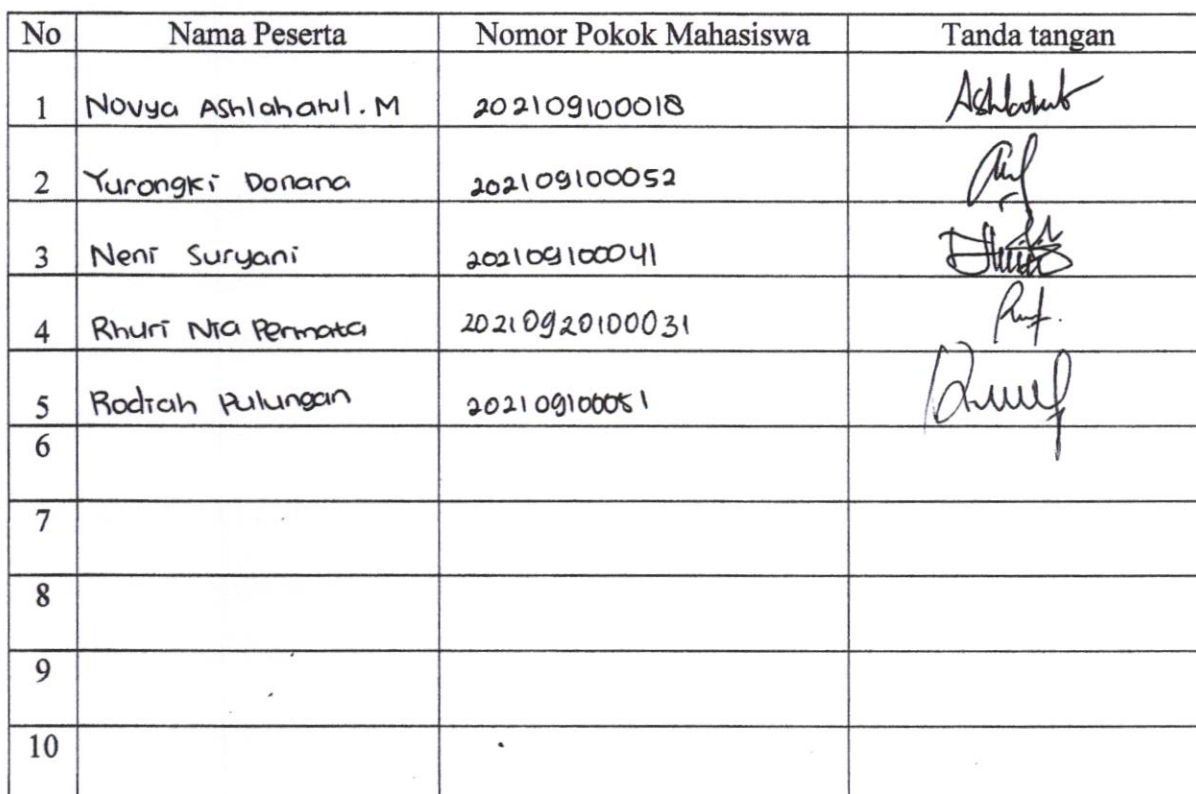 No Nama Peserta Nomor Pokok Mahasiswa Tanda tangan
1 Novya Ashlahatul.M 202109100018 Ashlahatul
2 Yurongki Donana 202109100052
3 Neni Suryani 202109100041
4 Rhuri Nia Permata 20210920100031
5 Rodiah Pulungan 202109100051
6
7
8
9
10